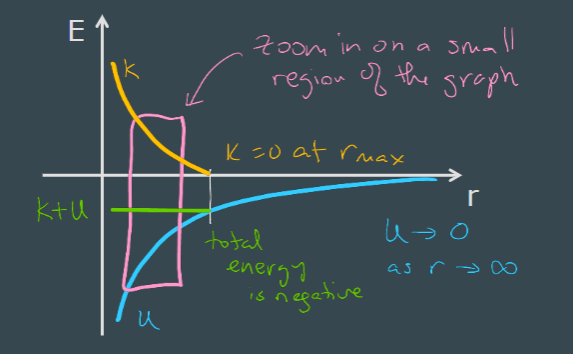 E
zoom in on a small
region of the graph
K
K=0 at rmax
r
K+U
total
energy
is negative
U→0
as r→∞
U